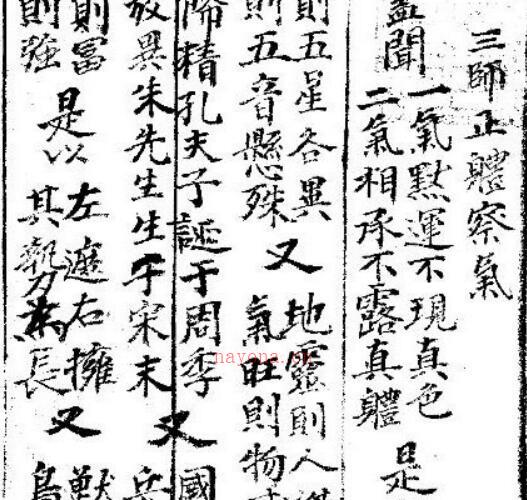 三師正體察氣
蓋聞
一氣默運不現真色
二氣相承不露真體
是
則五星各異
則五音懸殊
又
地靈則人
氣旺則物
降精孔夫子誕于周季
放異朱先生生于宋末
又
國
兵
則富
則強
是以
左遮右擁
其勢長
又
獸
鳥